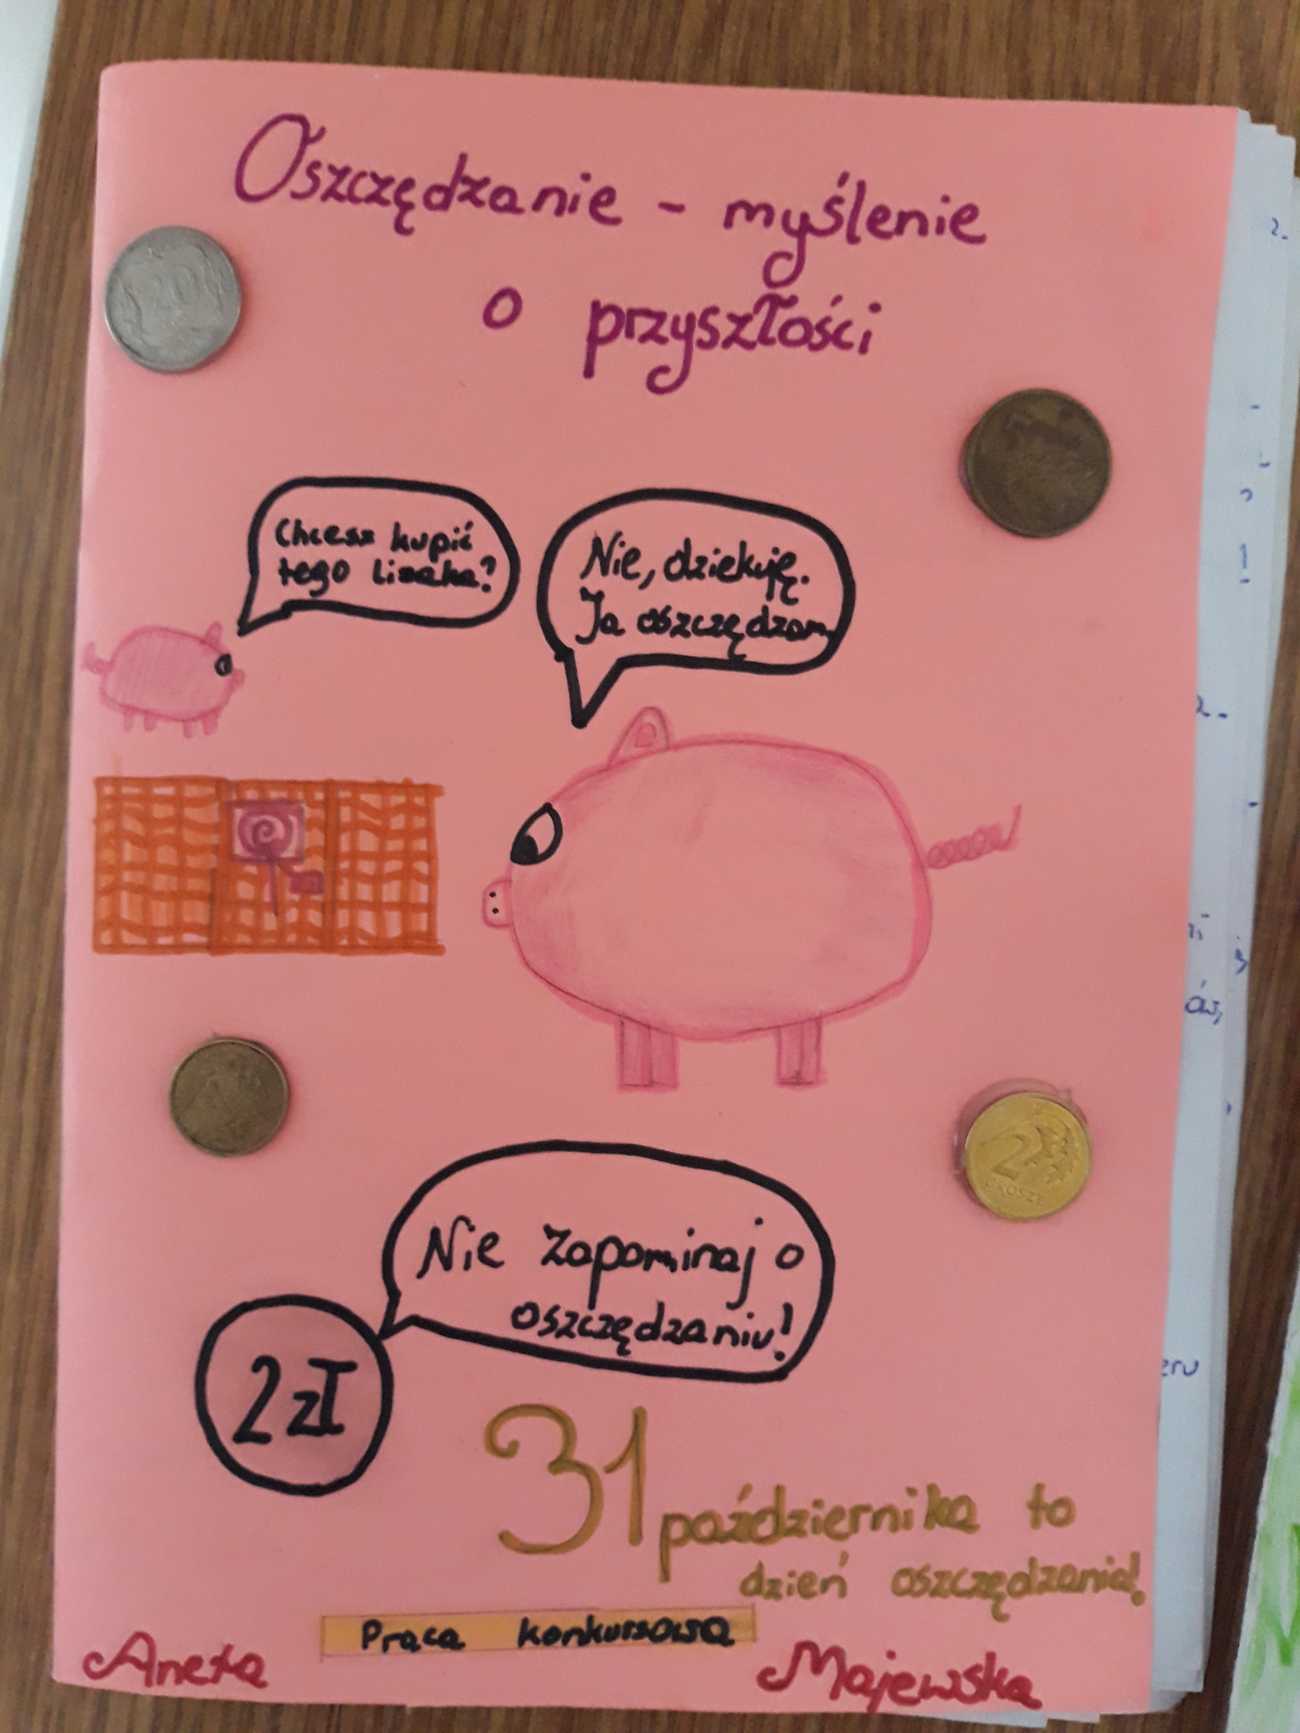 Oszczędzanie - myślenie
o przyszłości
20
Chcesz kupić
tego lizaka?
Nie, dziekuję.
Ja oszczędzam
2
GROSZE
Nie zapominaj o
oszczędzaniu!
2 zł
31 października to
dzień oszczędzania!
Praca konkursowa
Aneta Majewska